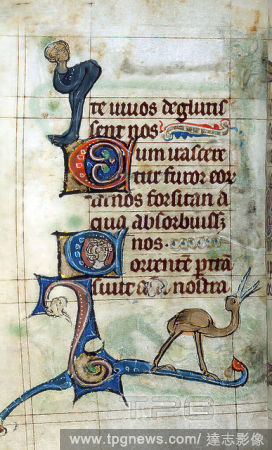 te vivos deglutis
sent nos
um irascere
tur furor eor
a nos forsitan a
qua absorbuiss
nos
orrente ptra
siuit aīa nostra
TPG
www.tpgnews.com/達志影像